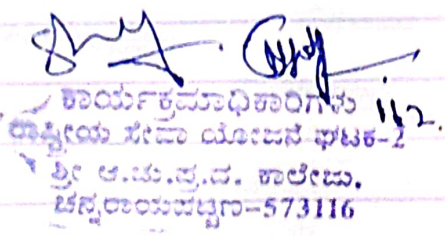 ಕಾರ್ಯಕ್ರಮಾಧಿಕಾರಿಗಳು
ರಾಷ್ಟ್ರೀಯ ಸೇವಾ ಯೋಜನೆ ಘಟಕ-2
ಶ್ರೀ ಆ.ಚು.ಪ್ರ.ದ. ಕಾಲೇಜು.
ಚನ್ನರಾಯಪಟ್ಟಣ-573116